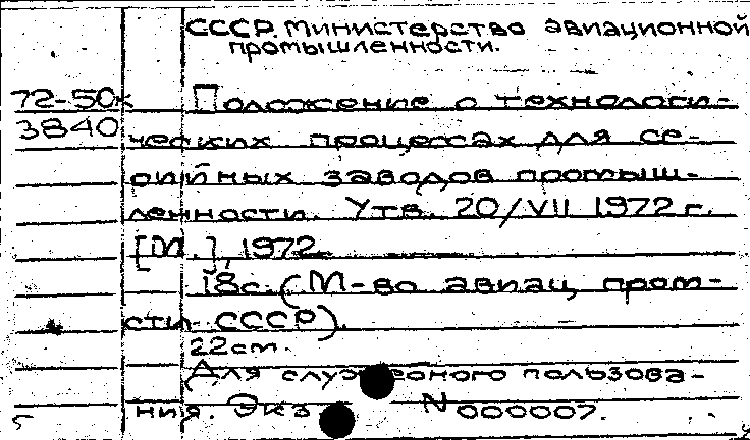 СССР. Министерство авиационной
промышленности.
72-50к Положение о технологи-
3840 ческих процессах для се-
рийных заводов промыш-
ленности. Утв. 20/VII 1972 г.
[М.], 1972
18с. (М-во авиац. пром-
сти СССР).
22 см.
Для служебного пользова-
ния. Экз N 000007.
5